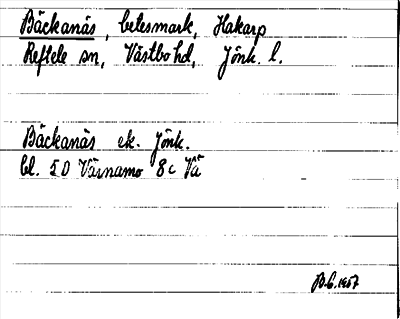 Bäckanäs, betesmark, Hakarp
Reftele sn, Västbo hd, Jönk. l.
Bäckanäs ek. Jönk.
bl. 5D Värnamo 8c Vä
1957